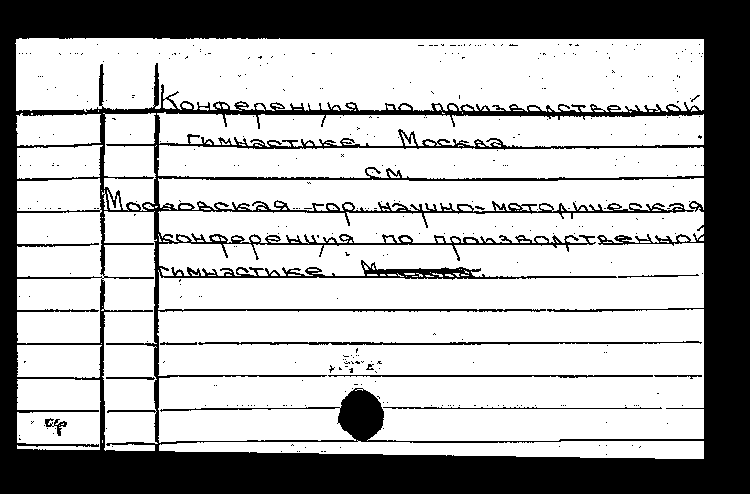 Конференция по производственной
гимнастике. Москва
см.
Московская гор. научно-методическая
конференция по производственной
гимнастике. Москва.